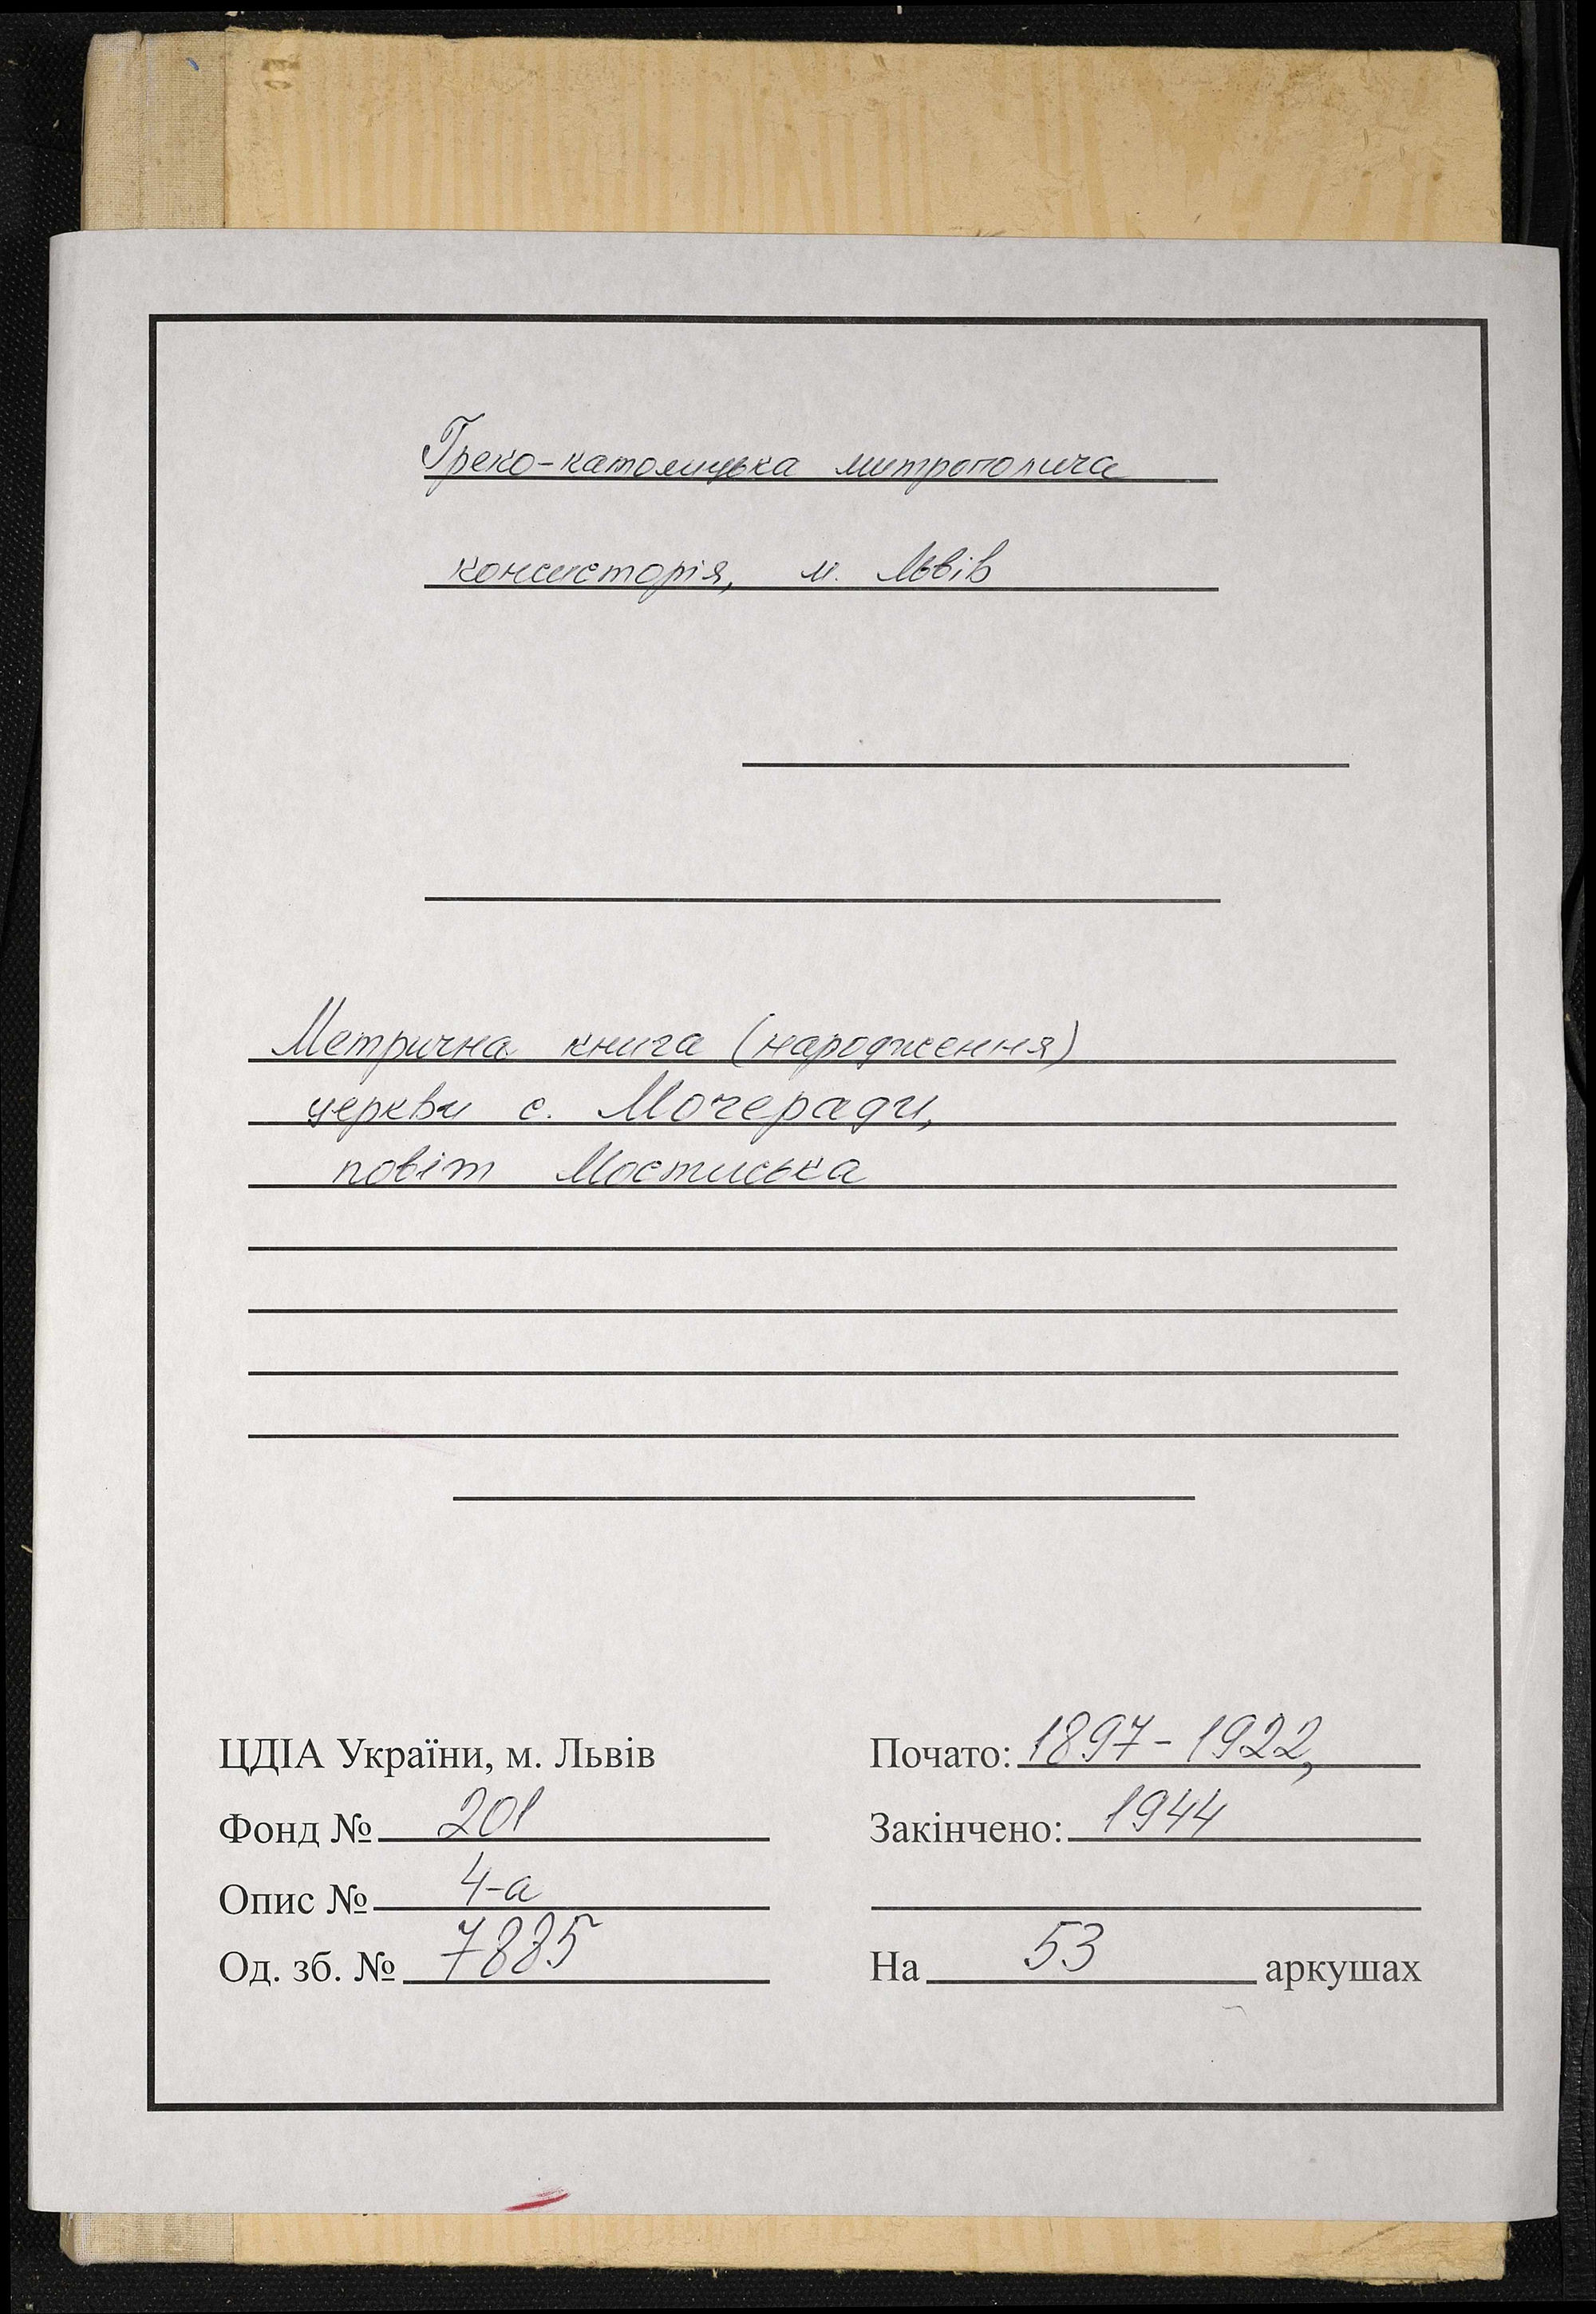 Греко-католицька митрополича
консисторія, м. Львів
Метрична книга (народження)
церкви с. Мочеради,
повіт Мостиська
ЦДІА України, м. Львів
Фонд № 201
Опис № 4-а
Од. зб. № 7885
Почато: 1897-1922,
Закінчено: 1944
На 53 аркушах